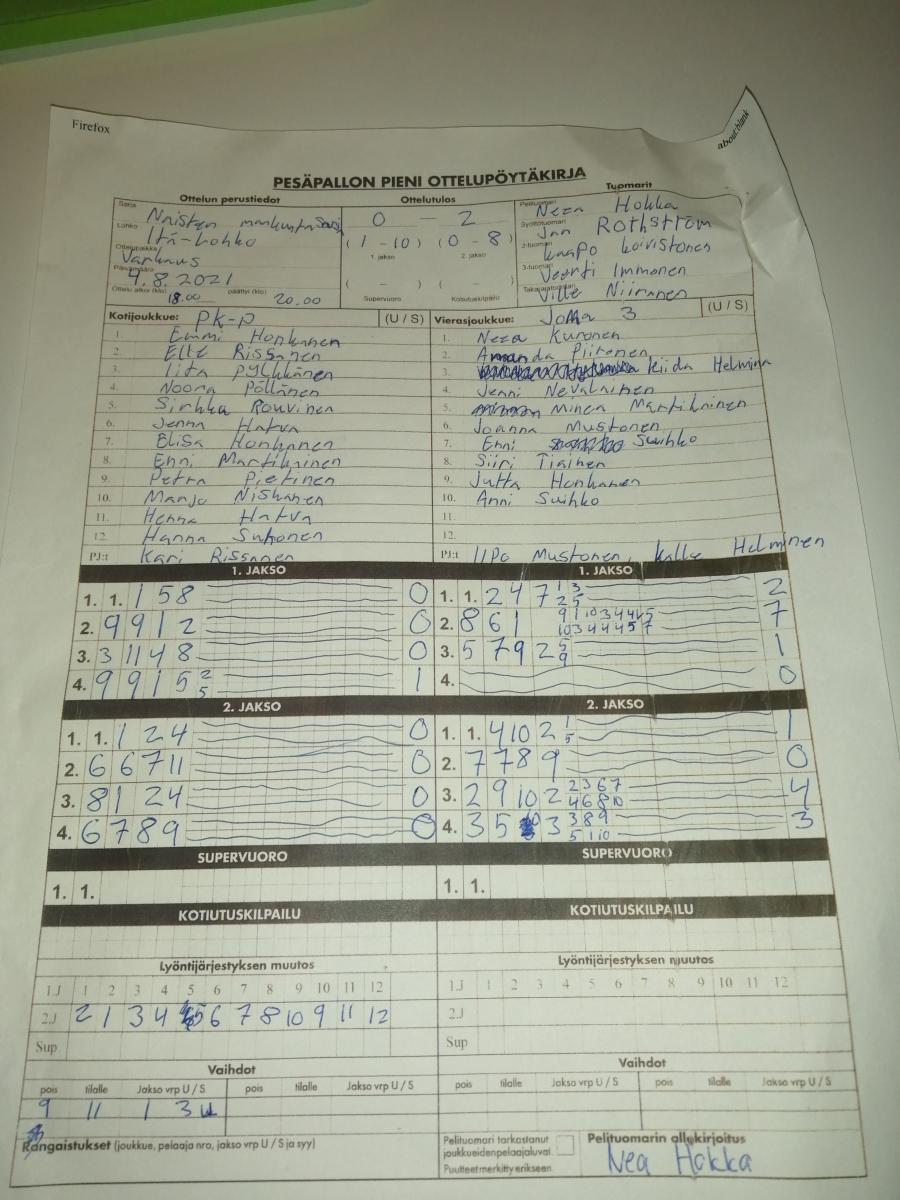 Firefox
about:blank
PESÄPALLON PIENI OTTELUPÖYTÄKIRJA
Ottelun perustiedot Ottelutulos Tuomarit
Sarja Naisten maakuntasarja
Lohko Itä-Lohko
Ottelupaikka Varkaus
Päivämäärä 4.8.2021
Ottelu alkoi (klo) 18.00 päättyi (klo) 20.00
0 - 2
(1 - 10) (0 - 8)
1. jakso 2. jakso
( - ) ( - )
Supervuoro Kotiutuskilpailu
Pelituomari Neea Hokka
Syöttötuomari Jan Rothström
2-tuomari Kaapo Koivistonen
3-tuomari Veenti Immonen
Takarajatuomari Ville Niiranen
Kotijoukkue: PK-P (U / S)
1. Emmi Honkanen
2. Elle Rissanen
3. Iita Pylkkänen
4. Noora Pöllänen
5. Sirkka Rouvinen
6. Jenna Hatva
7. Elisa Honkanen
8. Enni Martikainen
9. Petra Pietinen
10. Marju Niskanen
11. Henna Hatva
12. Hanna Suhonen
PJ:t Kari Rissanen
Vierasjoukkue: JoMa 3 (U / S)
1. Neea Kuronen
2. Amanda Piironen
3. Kiida Helmina
4. Jenni Nevalainen
5. Minea Martikainen
6. Joanna Mustonen
7. Enni Suihko
8. Siiri Tiainen
9. Jutta Honkanen
10. Anni Suihko
11.
12.
PJ:t Ilpo Mustonen, Kalle Helminen
1. JAKSO
1. 1. 1 5 8 0
2. 9 9 1 2 0
3. 3 11 4 8 0
4. 9 9 1 5 2 5 1
1. JAKSO
1. 1. 2 4 7 1 3 2 5 2
2. 8 6 1 9 1 10 3 4 4 4 5 10 3 4 4 4 5 7 7
3. 5 7 9 2 5 9 1
4. 0
2. JAKSO
1. 1. 1 2 4 0
2. 6 6 7 11 0
3. 8 1 2 4 0
4. 6 7 8 9 0
2. JAKSO
1. 1. 4 10 2 1 5 1
2. 7 7 8 9 0
3. 2 9 10 2 2 3 6 7 4 6 8 10 4
4. 3 5 3 3 8 9 5 1 10 3
SUPERVUORO SUPERVUORO
1. 1. 1. 1.
KOTIUTUSKILPAILU KOTIUTUSKILPAILU
Lyöntijärjestyksen muutos
1.J 1 2 3 4 5 6 7 8 9 10 11 12
2.J 2 1 3 4 5 6 7 8 10 9 11 12
Sup
Lyöntijärjestyksen muutos
1.J 1 2 3 4 5 6 7 8 9 10 11 12
2.J
Sup
Vaihdot
pois tilalle Jakso vrp U / S pois tilalle Jakso vrp U / S
9 11 1 3 U
Vaihdot
pois tilalle Jakso vrp U / S pois tilalle Jakso vrp U / S
Rangaistukset (joukkue, pelaaja nro, jakso vrp U / S ja syy)
Pelituomari tarkastanut
joukkueiden pelaajaluvat.
Puutteet merkitty erikseen.
Pelituomarin allekirjoitus
Nea Hokka